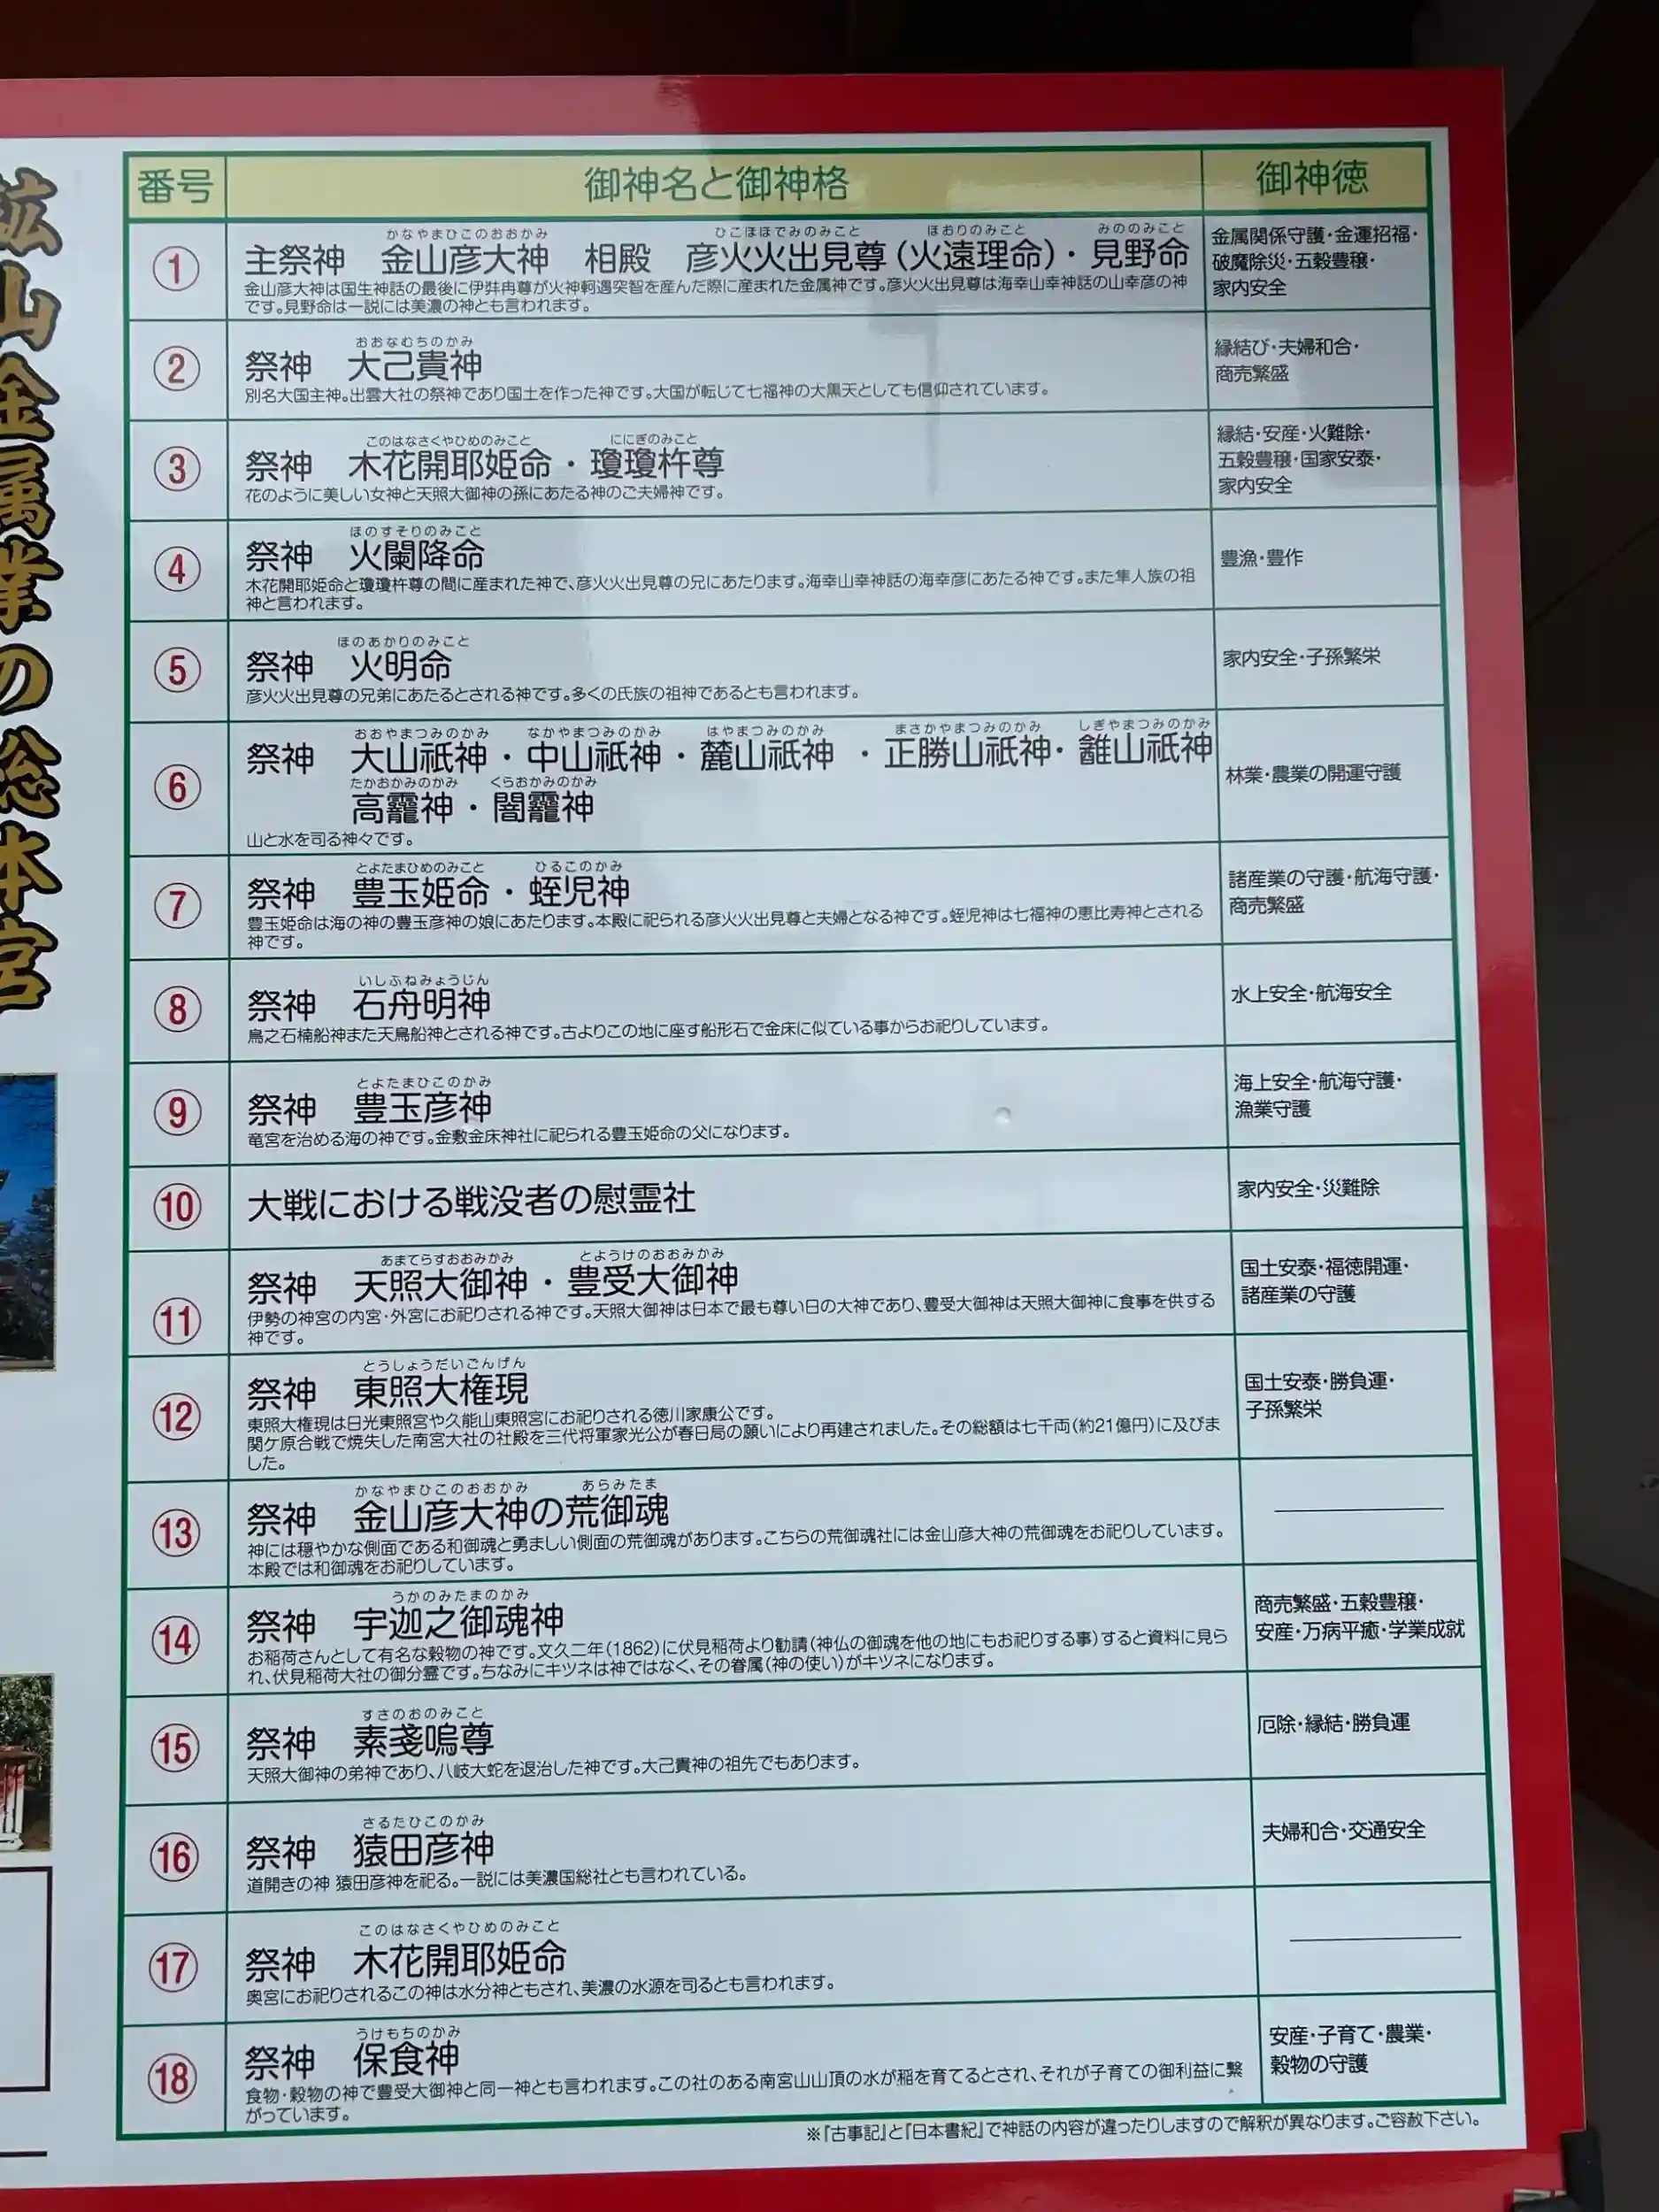 鉱山金属業の総本宮
番号
御神名と御神格
御神徳
①
かなやまひこのおおかみ ひこほほでみのみこと ほおりのみこと みののみこと
主祭神 金山彦大神 相殿 彦火火出見尊(火遠理命)・見野命
金山彦大神は国生神話の最後に伊弉冉尊が火神軻遇突智を産んだ際に産まれた金属神です。彦火火出見尊は海幸山幸神話の山幸彦の神
です。見野命は一説には美濃の神とも言われます。
金属関係守護・金運招福・
破魔除災・五穀豊穣・
家内安全
②
おおなむちのかみ
祭神 大己貴神
別名大国主神。出雲大社の祭神であり国土を作った神です。大国が転じて七福神の大黒天としても信仰されています。
縁結び・夫婦和合・
商売繁盛
③
このはなさくやひめのみこと ににぎのみこと
祭神 木花開耶姫命・瓊瓊杵尊
花のように美しい女神と天照大御神の孫にあたる神のご夫婦神です。
縁結・安産・火難除・
五穀豊穣・国家安泰・
家内安全
④
ほのすそりのみこと
祭神 火闌降命
木花開耶姫命と瓊瓊杵尊の間に産まれた神で、彦火火出見尊の兄にあたります。海幸山幸神話の海幸彦にあたる神です。また隼人族の祖
神と言われます。
豊漁・豊作
⑤
ほのあかりのみこと
祭神 火明命
彦火火出見尊の兄弟にあたるとされる神です。多くの氏族の祖神であるとも言われます。
家内安全・子孫繁栄
⑥
おおやまつみのかみ なかやまつみのかみ はやまつみのかみ まさかやまつみのかみ しぎやまつみのかみ
祭神 大山祇神・中山祇神・麓山祇神・正勝山祇神・䨄山祇神
たかおかみのかみ くらおかみのかみ
高龗神・闇龗神
山と水を司る神々です。
林業・農業の開運守護
⑦
とよたまひめのみこと ひるこのかみ
祭神 豊玉姫命・蛭児神
豊玉姫命は海の神の豊玉彦神の娘にあたります。本殿に祀られる彦火火出見尊と夫婦となる神です。蛭児神は七福神の恵比寿神とされる
神です。
諸産業の守護・航海守護・
商売繁盛
⑧
いしふねみょうじん
祭神 石舟明神
鳥之石楠船神また天鳥船神とされる神です。古よりこの地に座す船形石で金床に似ている事からお祀りしています。
水上安全・航海安全
⑨
とよたまひこのかみ
祭神 豊玉彦神
竜宮を治める海の神です。金敷金床神社に祀られる豊玉姫命の父になります。
海上安全・航海守護・
漁業守護
⑩
大戦における戦没者の慰霊社
家内安全・災難除
⑪
あまてらすおおみかみ とようけのおおみかみ
祭神 天照大御神・豊受大御神
伊勢の神宮の内宮・外宮にお祀りされる神です。天照大御神は日本で最も尊い日の大神であり、豊受大御神は天照大御神に食事を供する
神です。
国土安泰・福徳開運・
諸産業の守護
⑫
とうしょうだいごんげん
祭神 東照大権現
東照大権現は日光東照宮や久能山東照宮にお祀りされる徳川家康公です。
関ケ原合戦で焼失した南宮大社の社殿を三代将軍家光公が春日局の願いにより再建されました。その総額は七千両(約21億円)に及びま
した。
国土安泰・勝負運・
子孫繁栄
⑬
かなやまひこのおおかみ あらみたま
祭神 金山彦大神の荒御魂
神には穏やかな側面である和御魂と勇ましい側面の荒御魂があります。こちらの荒御魂社には金山彦大神の荒御魂をお祀りしています。
本殿では和御魂をお祀りしています。
⑭
うかのみたまのかみ
祭神 宇迦之御魂神
お稲荷さんとして有名な穀物の神です。文久二年(1862)に伏見稲荷より勧請(神仏の御魂を他の地にもお祀りする事)すると資料に見ら
れ、伏見稲荷大社の御分霊です。ちなみにキツネは神ではなく、その眷属(神の使い)がキツネになります。
商売繁盛・五穀豊穣・
安産・万病平癒・学業成就
⑮
すさのおのみこと
祭神 素戔嗚尊
天照大御神の弟神であり、八岐大蛇を退治した神です。大己貴神の祖先でもあります。
厄除・縁結・勝負運
⑯
さるたひこのかみ
祭神 猿田彦神
道開きの神 猿田彦神を祀る。一説には美濃国総社とも言われている。
夫婦和合・交通安全
⑰
このはなさくやひめのみこと
祭神 木花開耶姫命
奥宮にお祀りされるこの神は水分神ともされ、美濃の水源を司るとも言われます。
⑱
うけもちのかみ
祭神 保食神
食物・穀物の神で豊受大御神と同一神とも言われます。この社のある南宮山山頂の水が稲を育てるとされ、それが子育ての御利益に繋
がっています。
安産・子育て・農業・
穀物の守護
※『古事記』と『日本書紀』で神話の内容が違ったりしますので解釈が異なります。ご容赦下さい。